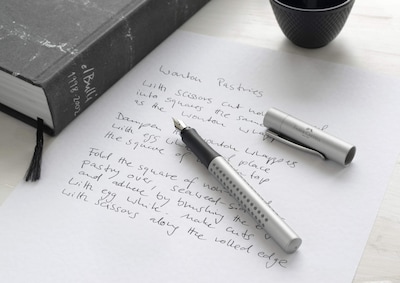 elBulli
1998-2002
Wonton Pastries
With scissors cut
into squares the same
as the wonton
Dampen wonton wrappers
with egg place
the square of
Fold the square of
pastry over seaweed
and adhere by brushing the
with egg white, make cuts
with scissors along the folded edge